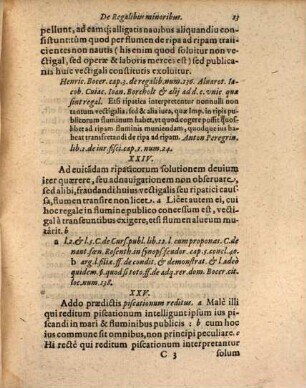 De Regalibus minoribus. 23
pellunt, ad eamq; alligatis nauibus aliquandiu con-
sistunt: tùm quod per flumen de ripa ad ripam traij-
cientes non nautis (his enim quod soluitur non ve-
ctigal, sed operæ & laboris merces est) sed publica-
nis huic vectigali constitutis exoluitur.
Henric. Bocer. cap. 5. de regalib. num. 136. Aluarot. Ia-
cob. Cuiac. Ioan. Borcholt & alij ad d. c. vnic. quæ
sint regal. Etsi ripatica interpretentur nonnulli non
tantum vectigalia: sed & alia iura, quæ Imp. in ripis pu-
blicorum fluminum habet, vt quod cogere possit quos-
libet ad ripam fluminis muniendam, quodque ius ha-
beat transfretandi de ripa ad ripam. Anton Peregrin.
lib. 1. de iur. fisci. cap. 1. num. 24.
XXIV.
Ad euitādam ripaticorum solutionem deuium
iter quærere, seu adnauigationem non obseruare,
sed alibi, fraudandi huius vectigalis seu ripatici caus-
sa, flumen transire non licet. a Licet autem ei, cui
hoc regale in flumine publico concessum est, vecti-
gal à transeuntibus exigere, etsi flumen alueum mu-
târit. b
a l. 2. & l. 5. C. de Curs. publ. lib. 12. l. cum proponas. C. de
naut. fæn. Rosenth. in synops. feudor. cap. 5. concl. 40.
b arg. l. filia. ff. de condit. & demonstrat. & l. adeò
quidem. §. quod si toto. ff. de adq. rer. dom. Bocer. cit.
loc. num. 138.
XXV.
Addo prædictis piscationum reditus. a Malè illi
qui reditum piscationum intelligunt ipsum ius pi-
scandi in mari & fluminibus publicis: b cum hoc
ius commune sit omnibus, non principi peculiare. c
Hi rectè qui reditum piscationum interpretantur
C 3 solum